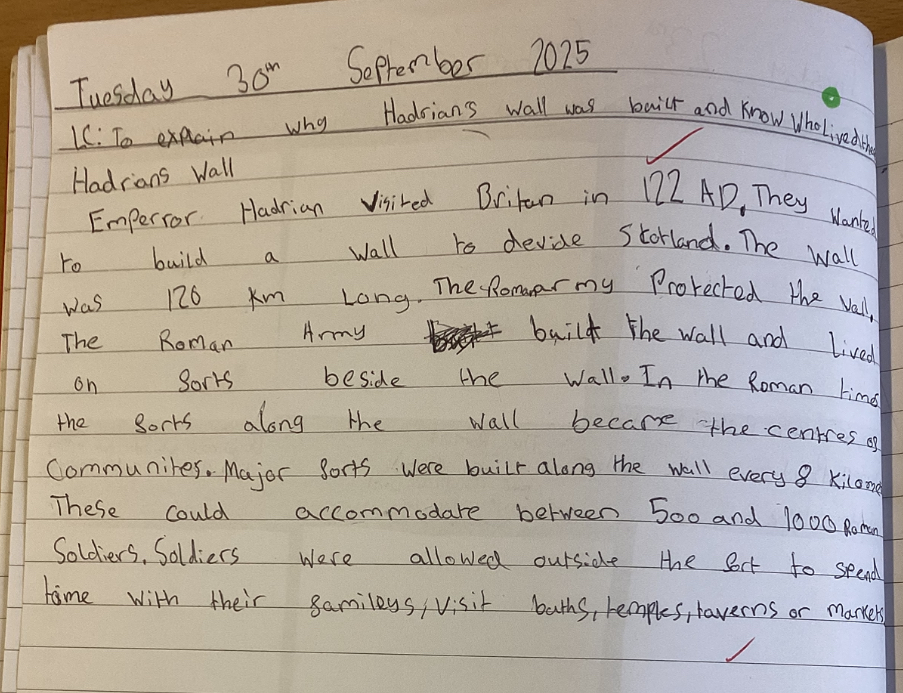 Tuesday 30th September 2025
LC: To explain why Hadrian's wall was built and know who Lived
Hadrians Wall
Emperror Hadrian visited Britan in 122 AD. They wanted
to build a wall to devide Skotland. The wall
was 120 km Long. The Roman army Protected the wall.
The Roman Army built the wall and lived
on forts beside the wall. In the Roman times
the forts along the wall became the centres of
Communites. Major forts were built along the wall every 8
These could accommodate between 500 and 1000 Roman
Soldiers. Soldiers were allowed outside the fort to spend
time with their famileys, visit baths, temples, taverns or markets